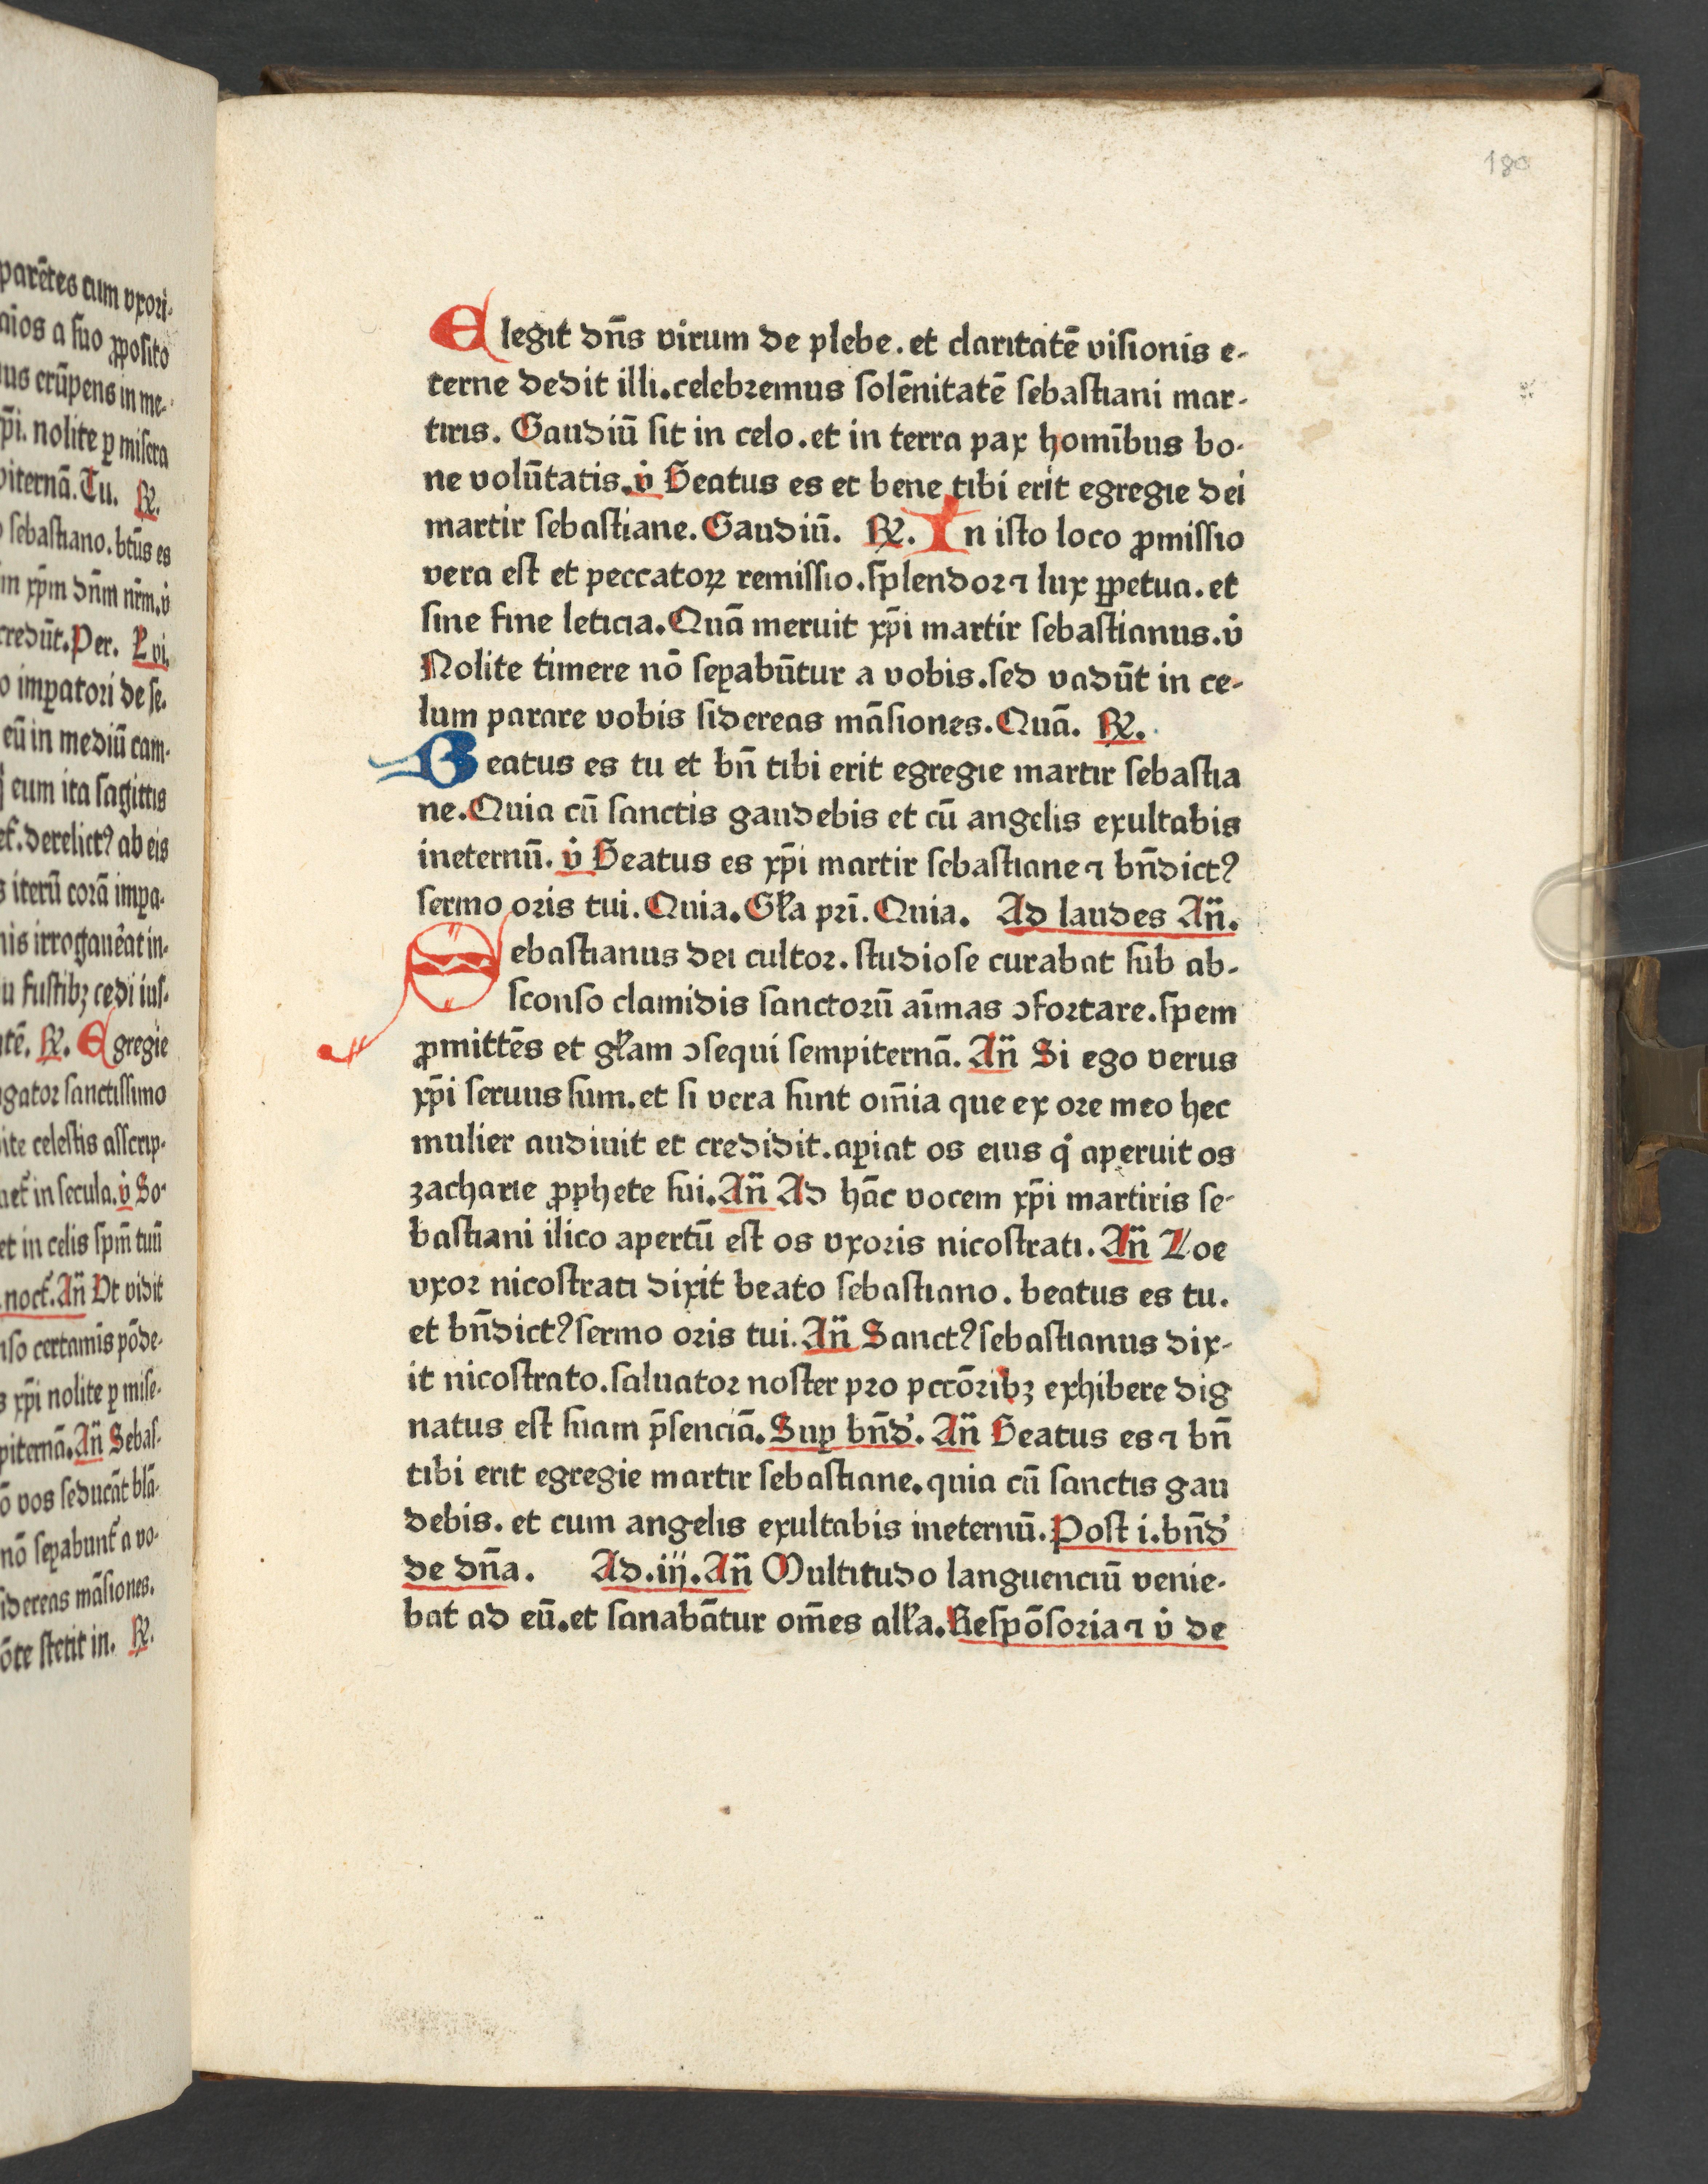 parētes cum vxori-
aios a suo ꝓposito
us erūpens in me-
xp̄i. nolite ꝑ misera
piternā. Tu. ℟.
sebastiano. btūs es
im xp̄m dn̄m nr̄m. v̇
credūt. Per. L vi.
o imꝑatori de se-
eū in mediū cam-
eum ita sagittis
et̄. derelictꝰ ab eis
s iterū corā imꝑa-
nis irrogauēat in-
u fustibꝫ cedi ius-
tē. ℟. Egregie
gator sanctissimo
ite celestis asscrip-
uet̄ in secula. v̇ So-
et in celis spm̄ tuū
noct̄. An̄ Vt vidit
nso certamīs pōde-
s xp̄i nolite ꝑ mise-
piternā. An̄ Sebas-
ō vos seducāt blā-
nō seꝑabunt̄ a vo-
sidereas māsiones.
ōte stetit in. ℟.
180
Elegit dn̄s virum de plebe. et claritatē visionis e-
terne dedit illi. celebremus solēnitatē sebastiani mar-
tiris. Gaudiū sit in celo. et in terra pax homībus bo-
ne volūtatis. v̇ Beatus es et bene tibi erit egregie dei
martir sebastiane. Gaudiū. ℟. In isto loco ꝓmissio
vera est et peccatoꝝ remissio. splendor ⁊ lux ꝑpetua. et
sine fine leticia. Quā meruit xp̄i martir sebastianus. v̇
Nolite timere nō seꝑabūtur a vobis. sed vadūt in ce-
lum parare vobis sidereas māsiones. Quā. ℟.
Beatus es tu et bn̄ tibi erit egregie martir sebastia
ne. Quia cū sanctis gaudebis et cū angelis exultabis
ineternū. v̇ Beatus es xp̄i martir sebastiane ⁊ bn̄dictꝰ
sermo oris tui. Quia. Gl̄a pri. Quia. Ad laudes An̄.
Sebastianus dei cultor. studiose curabat sub ab-
sconso clamidis sanctorū aīmas ↄfortare. spem
ꝓmittēs et gl̄am ↄsequi sempiternā. An̄ Si ego verus
xp̄i seruus sum. et si vera sunt om̄ia que ex ore meo hec
mulier audiuit et credidit. aꝑiat os eius qͥ aperuit os
zacharie ꝓphete sui. An̄ Ad hāc vocem xp̄i martiris se-
bastiani ilico apertū est os vxoris nicostrati. An̄ Zoe
vxor nicostrati dixit beato sebastiano. beatus es tu.
et bn̄dictꝰ sermo oris tui. An̄ Sanctꝰ sebastianus dix-
it nicostrato. saluator noster pro pccōribꝫ exhibere dig
natus est suam p̄senciā. Suꝑ bn̄d'. An̄ Beatus es ⁊ bn̄
tibi erit egregie martir sebastiane. quia cū sanctis gau
debis. et cum angelis exultabis ineternū. Post i. bn̄d'
de dn̄a. Ad. iij. An̄ Multitudo languenciū venie-
bat ad eū. et sanabātur om̄es all̄a. Respōsoria ⁊ v̇ de